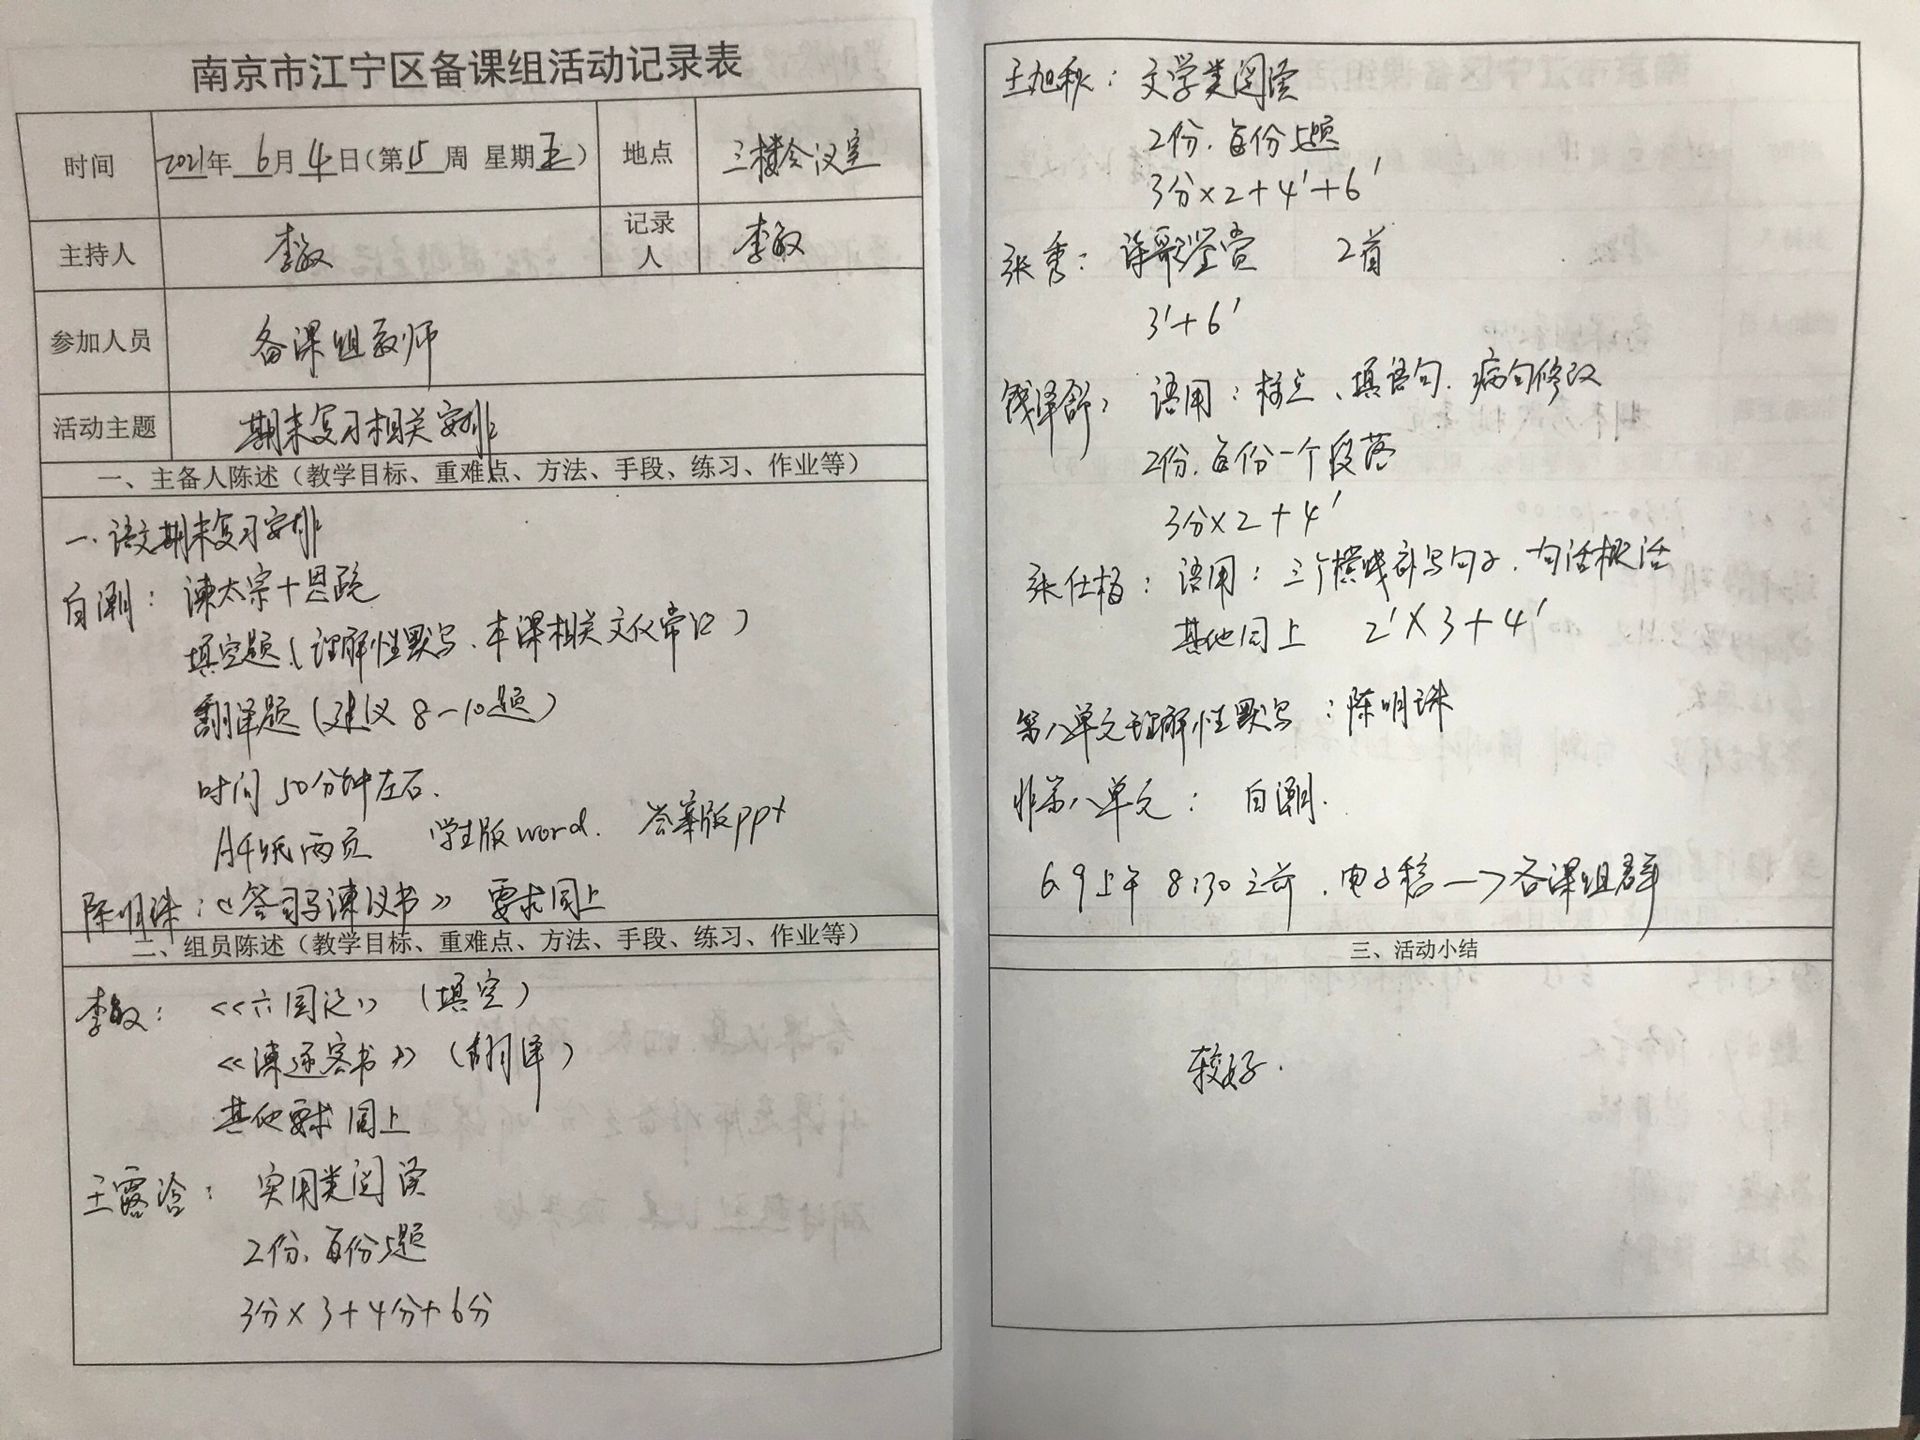 南京市江宁区备课组活动记录表
时间 2021年6月4日(第15周 星期五) 地点 三楼会议室
主持人 李敏 记录人 李敏
参加人员 备课组教师
活动主题 期末复习相关安排
一、主备人陈述（教学目标、重难点、方法、手段、练习、作业等）
一.语文期末复习安排
白潮: 谏太宗十思疏
填空题(理解性默写、本课相关文化常识)
翻译题(建议8-10题)
时间50分钟左右.
A4纸两页 学生版word. 答案版ppt
陈明珠:《答司马谏议书》 要求同上
二、组员陈述（教学目标、重难点、方法、手段、练习、作业等）
李敏: 《六国论》(填空)
《谏逐客书》(翻译)
其他要求同上
王露: 实用类阅读
2份、每份5题
3分×3+4分+6分
王旭秋: 文学类阅读
2份.每份5题
3分×2+4'+6'
张秀: 诗歌鉴赏 2首
3'+6'
钱泽舒: 语用:标点、填语句.病句修改
2份.每份一个段落
3分×2+4'
张仕梅: 语用:三个横线补写句子.
其他同上 2'×3+4'
第八单元理解性默写:陈明珠
非第八单元: 白潮.
6.9上午8:30之前.电子稿→备课组群
三、活动小结
较好.